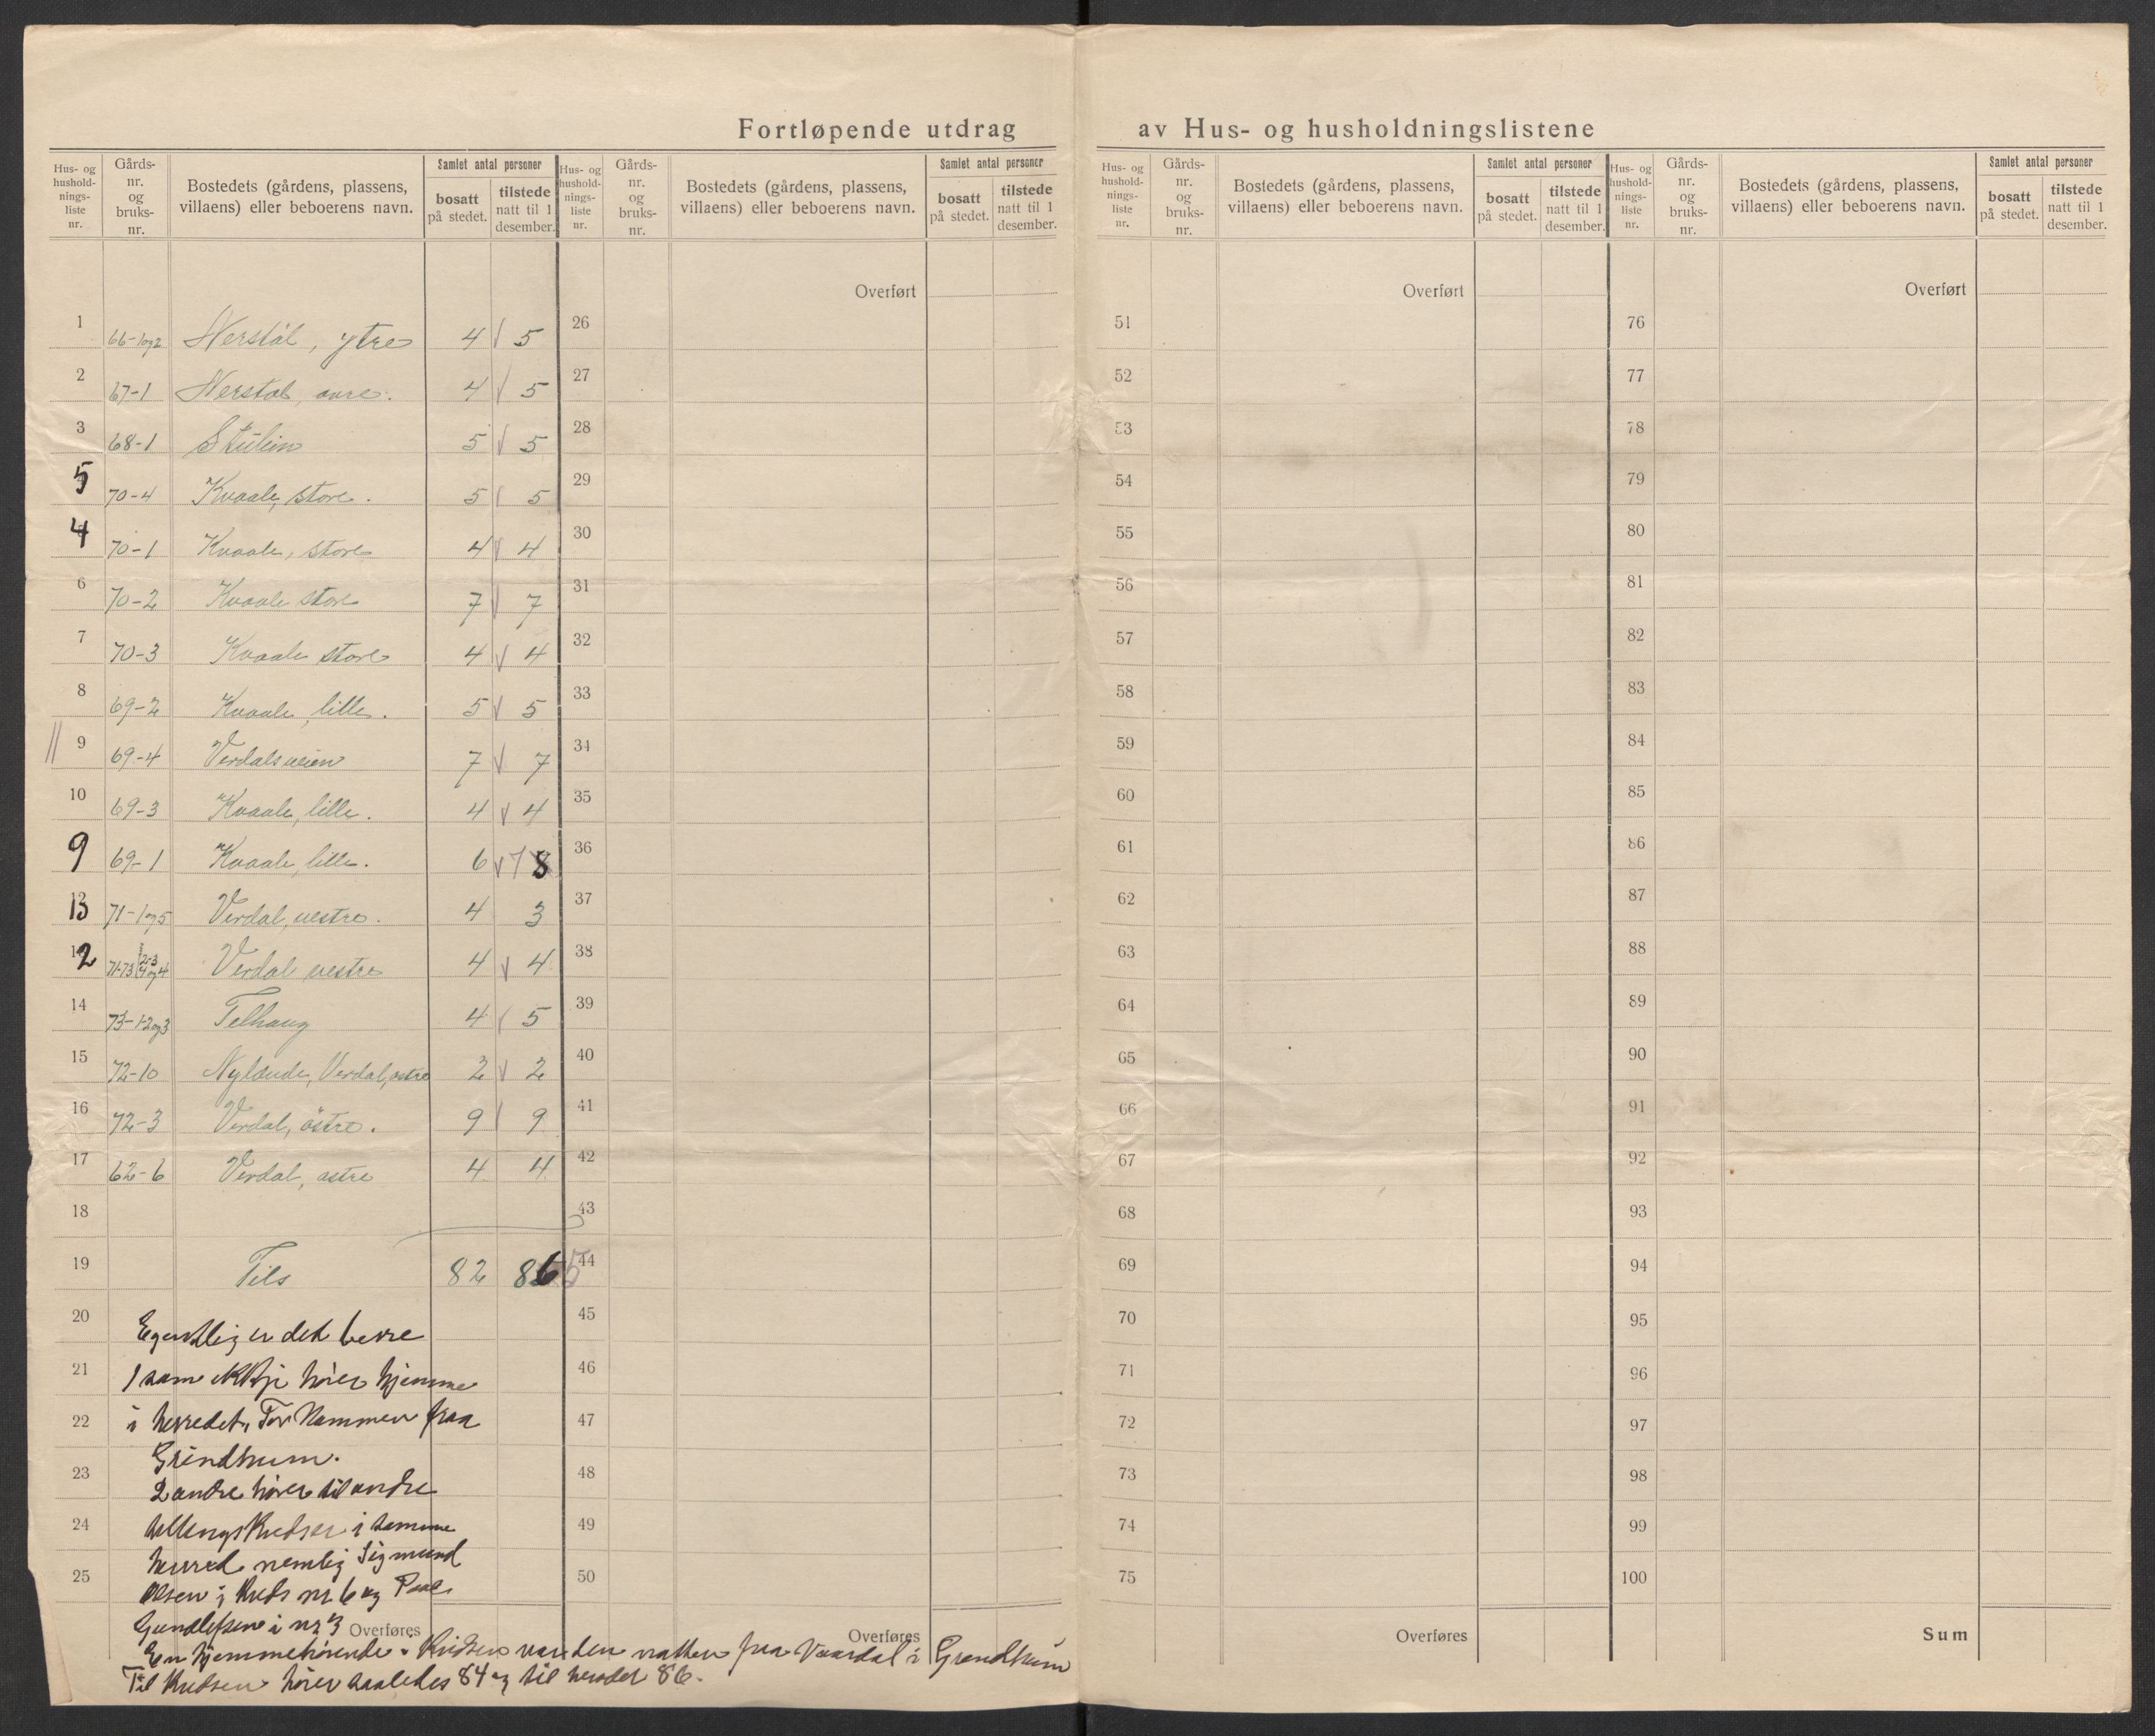 Fortløpende utdrag av Hus- og husholdningslistene
Hus- og hushold- nings- liste nr. Gårds- nr. og bruks- nr. Bostedets (gårdens, plassens, villaens) eller beboerens navn. Samlet antal personer bosatt på stedet. tilstede natt til 1 desember.
Hus- og hushold- nings- liste nr. Gårds- nr. og bruks- nr. Bostedets (gårdens, plassens, villaens) eller beboerens navn. Samlet antal personer bosatt på stedet. tilstede natt til 1 desember.
Hus- og hushold- nings- liste nr. Gårds- nr. og bruks- nr. Bostedets (gårdens, plassens, villaens) eller beboerens navn. Samlet antal personer bosatt på stedet. tilstede natt til 1 desember.
Hus- og hushold- nings- liste nr. Gårds- nr. og bruks- nr. Bostedets (gårdens, plassens, villaens) eller beboerens navn. Samlet antal personer bosatt på stedet. tilstede natt til 1 desember.
Overført Overført Overført
1 66-1og2 Nerstöl, ytre 4 5 26 51 76
2 67-1 Nerstöl, övre. 4 5 27 52 77
3 68-1 Stulein 5 5 28 53 78
5 70-4 Kvaale, store. 5 5 29 54 79
4 70-1 Kvaale, store 4 4 30 55 80
6 70-2 Kvaale store 7 7 31 56 81
7 70-3 Kvaale store 4 4 32 57 82
8 69-2 Kvaale, lille. 5 5 33 58 83
9 69-4 Verdalsveien 7 7 34 59 84
10 69-3 Kvaale, lille. 4 4 35 60 85
9 69-1 Kvaale, lille. 6 7 8 36 61 86
13 71-1og5 Verdal, vestre. 4 3 37 62 87
12 71-73 Verdal vestre 4 4 38 63 88
14 73-1-2og3 Telhaug 4 5 39 64 89
15 72-10 Nylænde, Verdal, östre 2 2 40 65 90
16 72-3 Verdal, östre. 9 9 41 66 91
17 62-6 Verdal, östre 4 4 42 67 92
18 43 68 93
19 Tils 82 86 5 44 69 94
20 Egentlig er det berre 45 70 95
21 1 som ikkje hörer hjemme 46 71 96
22 i herredet, Tor Nommen fraa 47 72 97
Grindheim.
23 2 andre hörer til andre 48 73 98
24 tellingskredser i samme 49 74 99
herred nemlig Sigmund
25 Olsen i Kreds nr. 6 og Paal 50 75 100
Gundlefsen i nr 3 Overføres Overføres Overføres Sum
En hjemmehörende i Kredsen var den natten fraa Vaardal i Grendheim
Til Kredsen hörer saaledes 84 og til herredet 86.